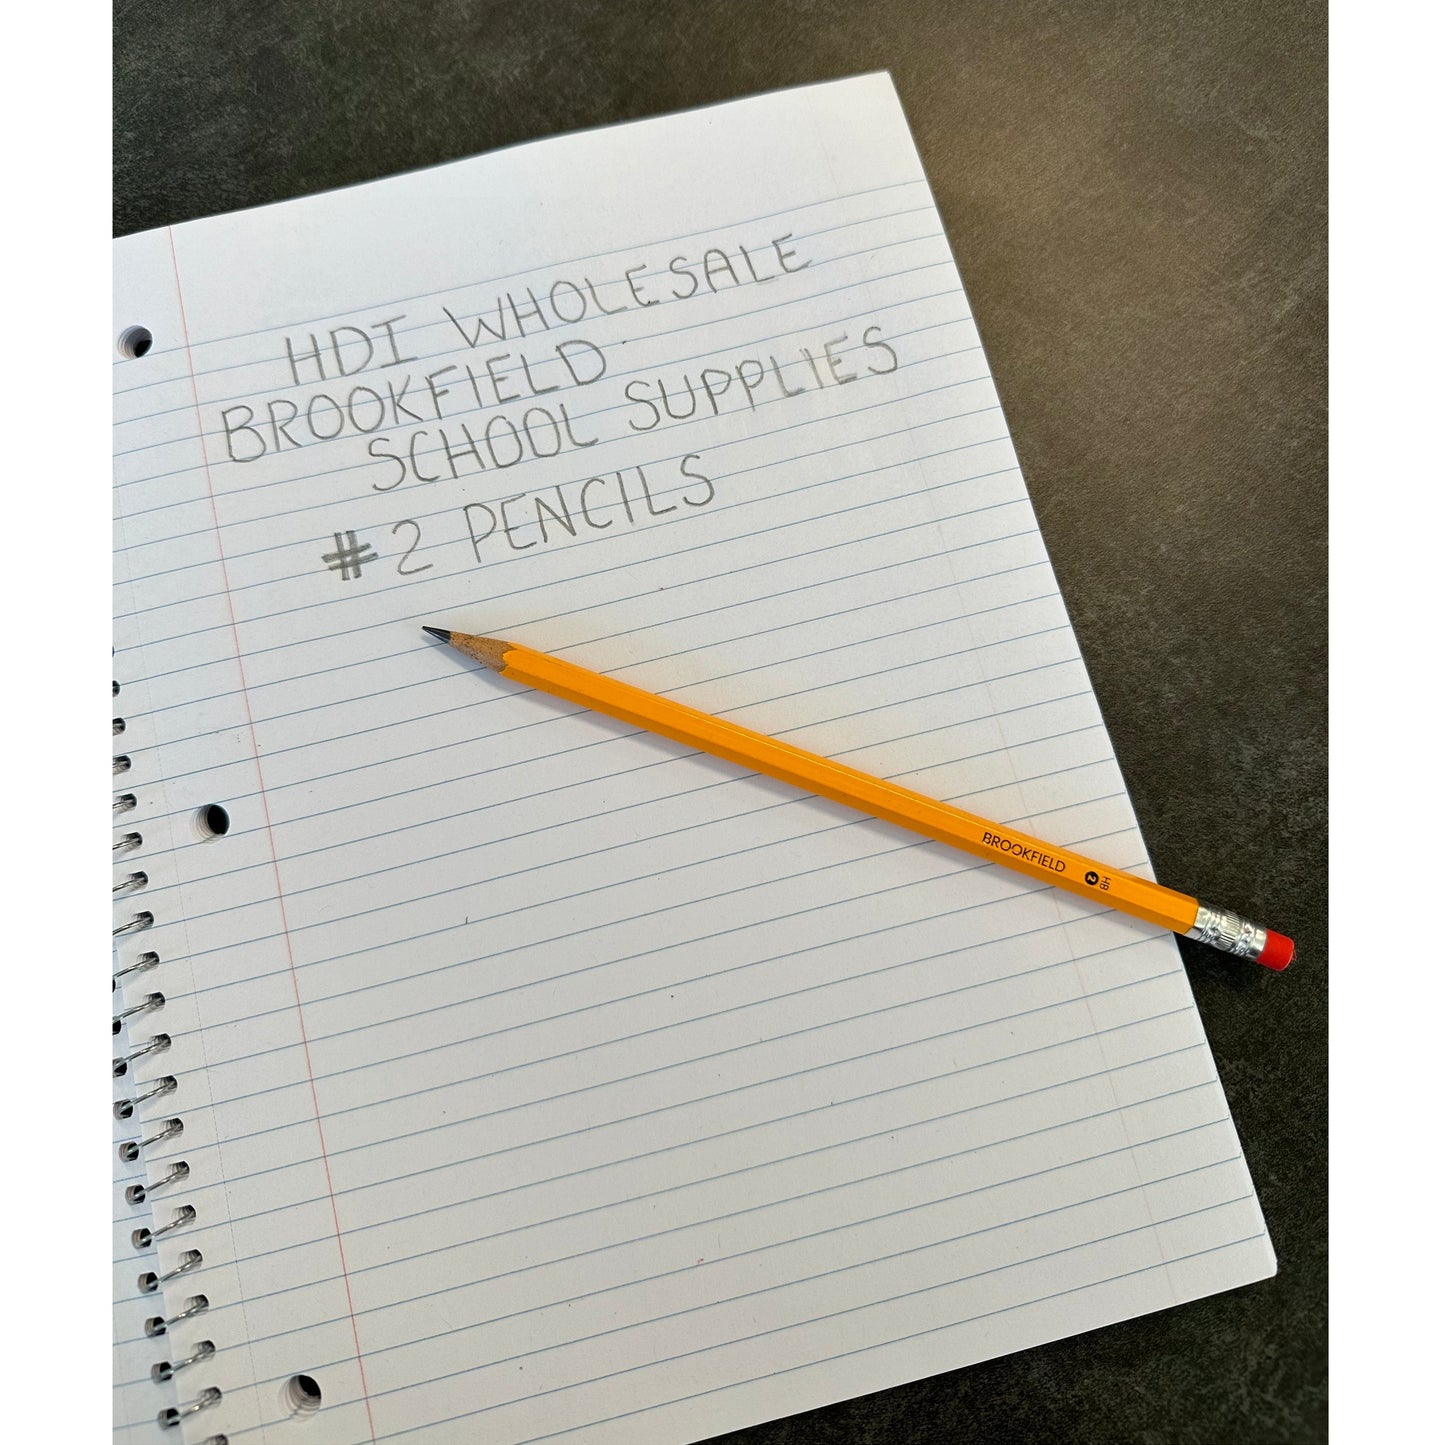 HDI WHOLESALE
BROOKFIELD
SCHOOL SUPPLIES
#2 PENCILS
BROOKFIELD 2 HB